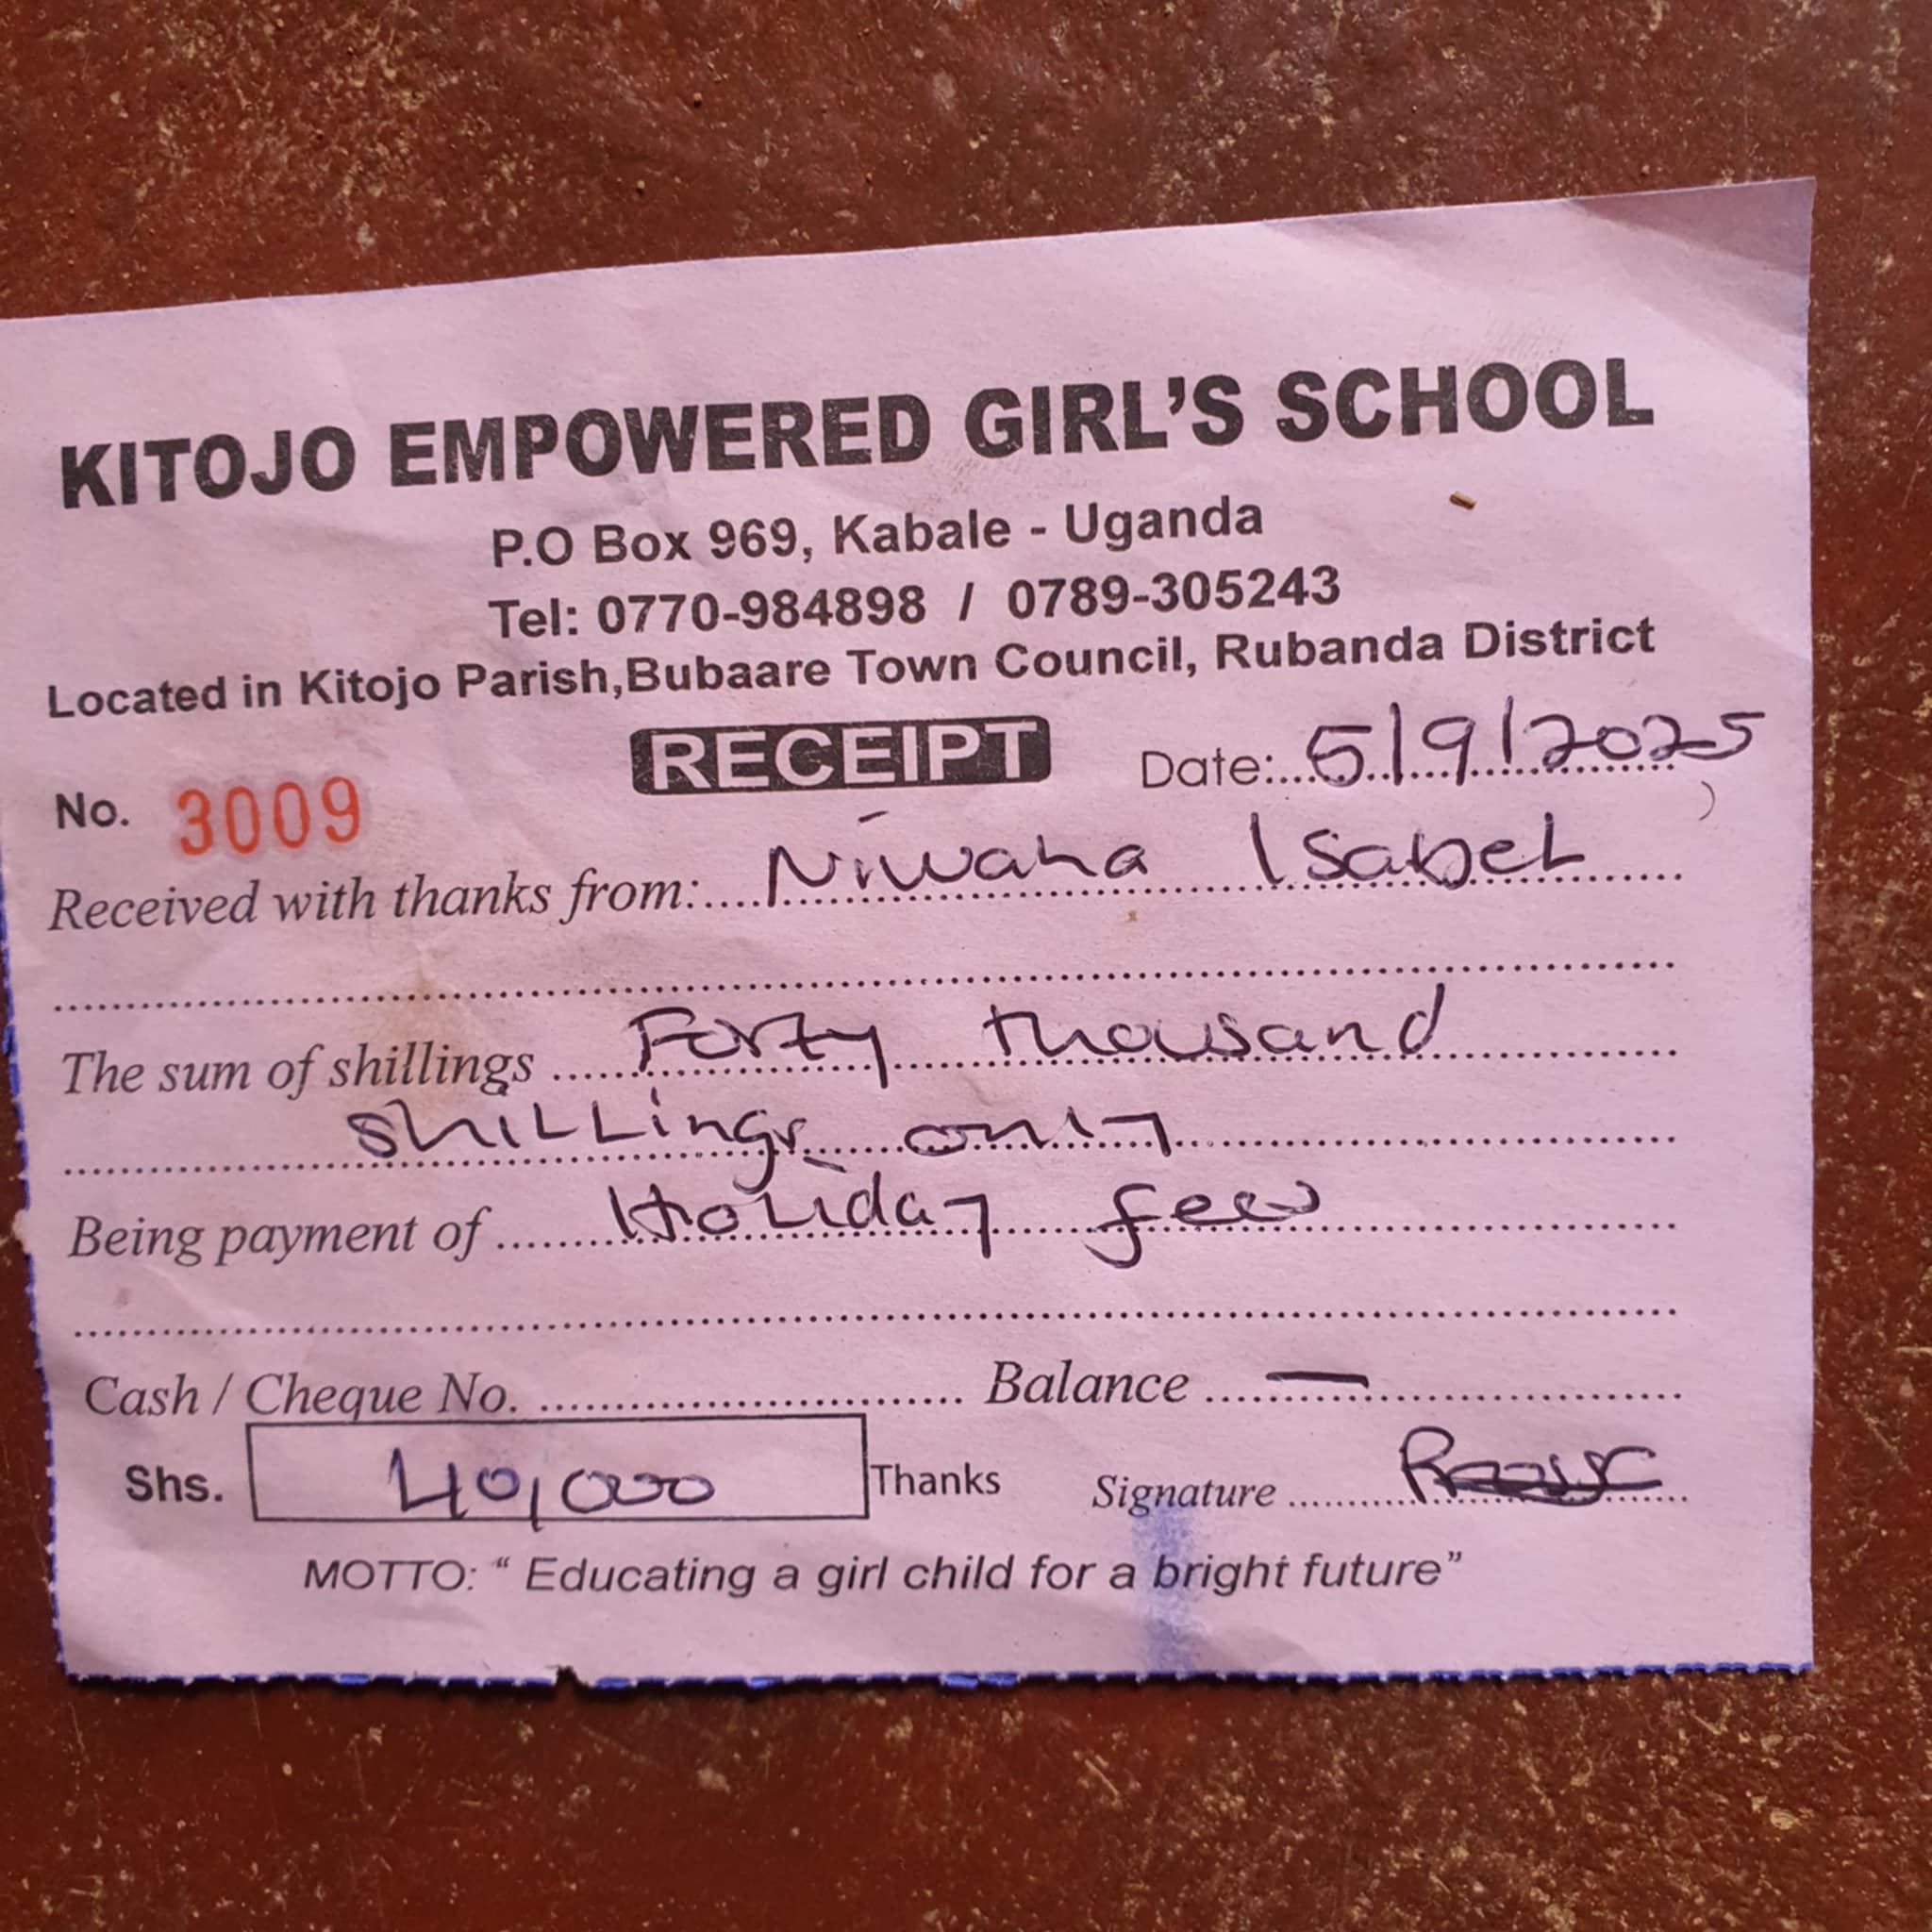 KITOJO EMPOWERED GIRL'S SCHOOL
P.O Box 969, Kabale - Uganda
Tel: 0770-984898 / 0789-305243
Located in Kitojo Parish,Bubaare Town Council, Rubanda District
RECEIPT Date:...5/9/2025
No. 3009
Received with thanks from:....Niwaha Isabel
The sum of shillings ....Forty thousand
shillings only
Being payment of ....Holiday fees
Cash / Cheque No. .................... Balance ....—
Shs. 40,000 Thanks Signature ....
MOTTO: " Educating a girl child for a bright future"